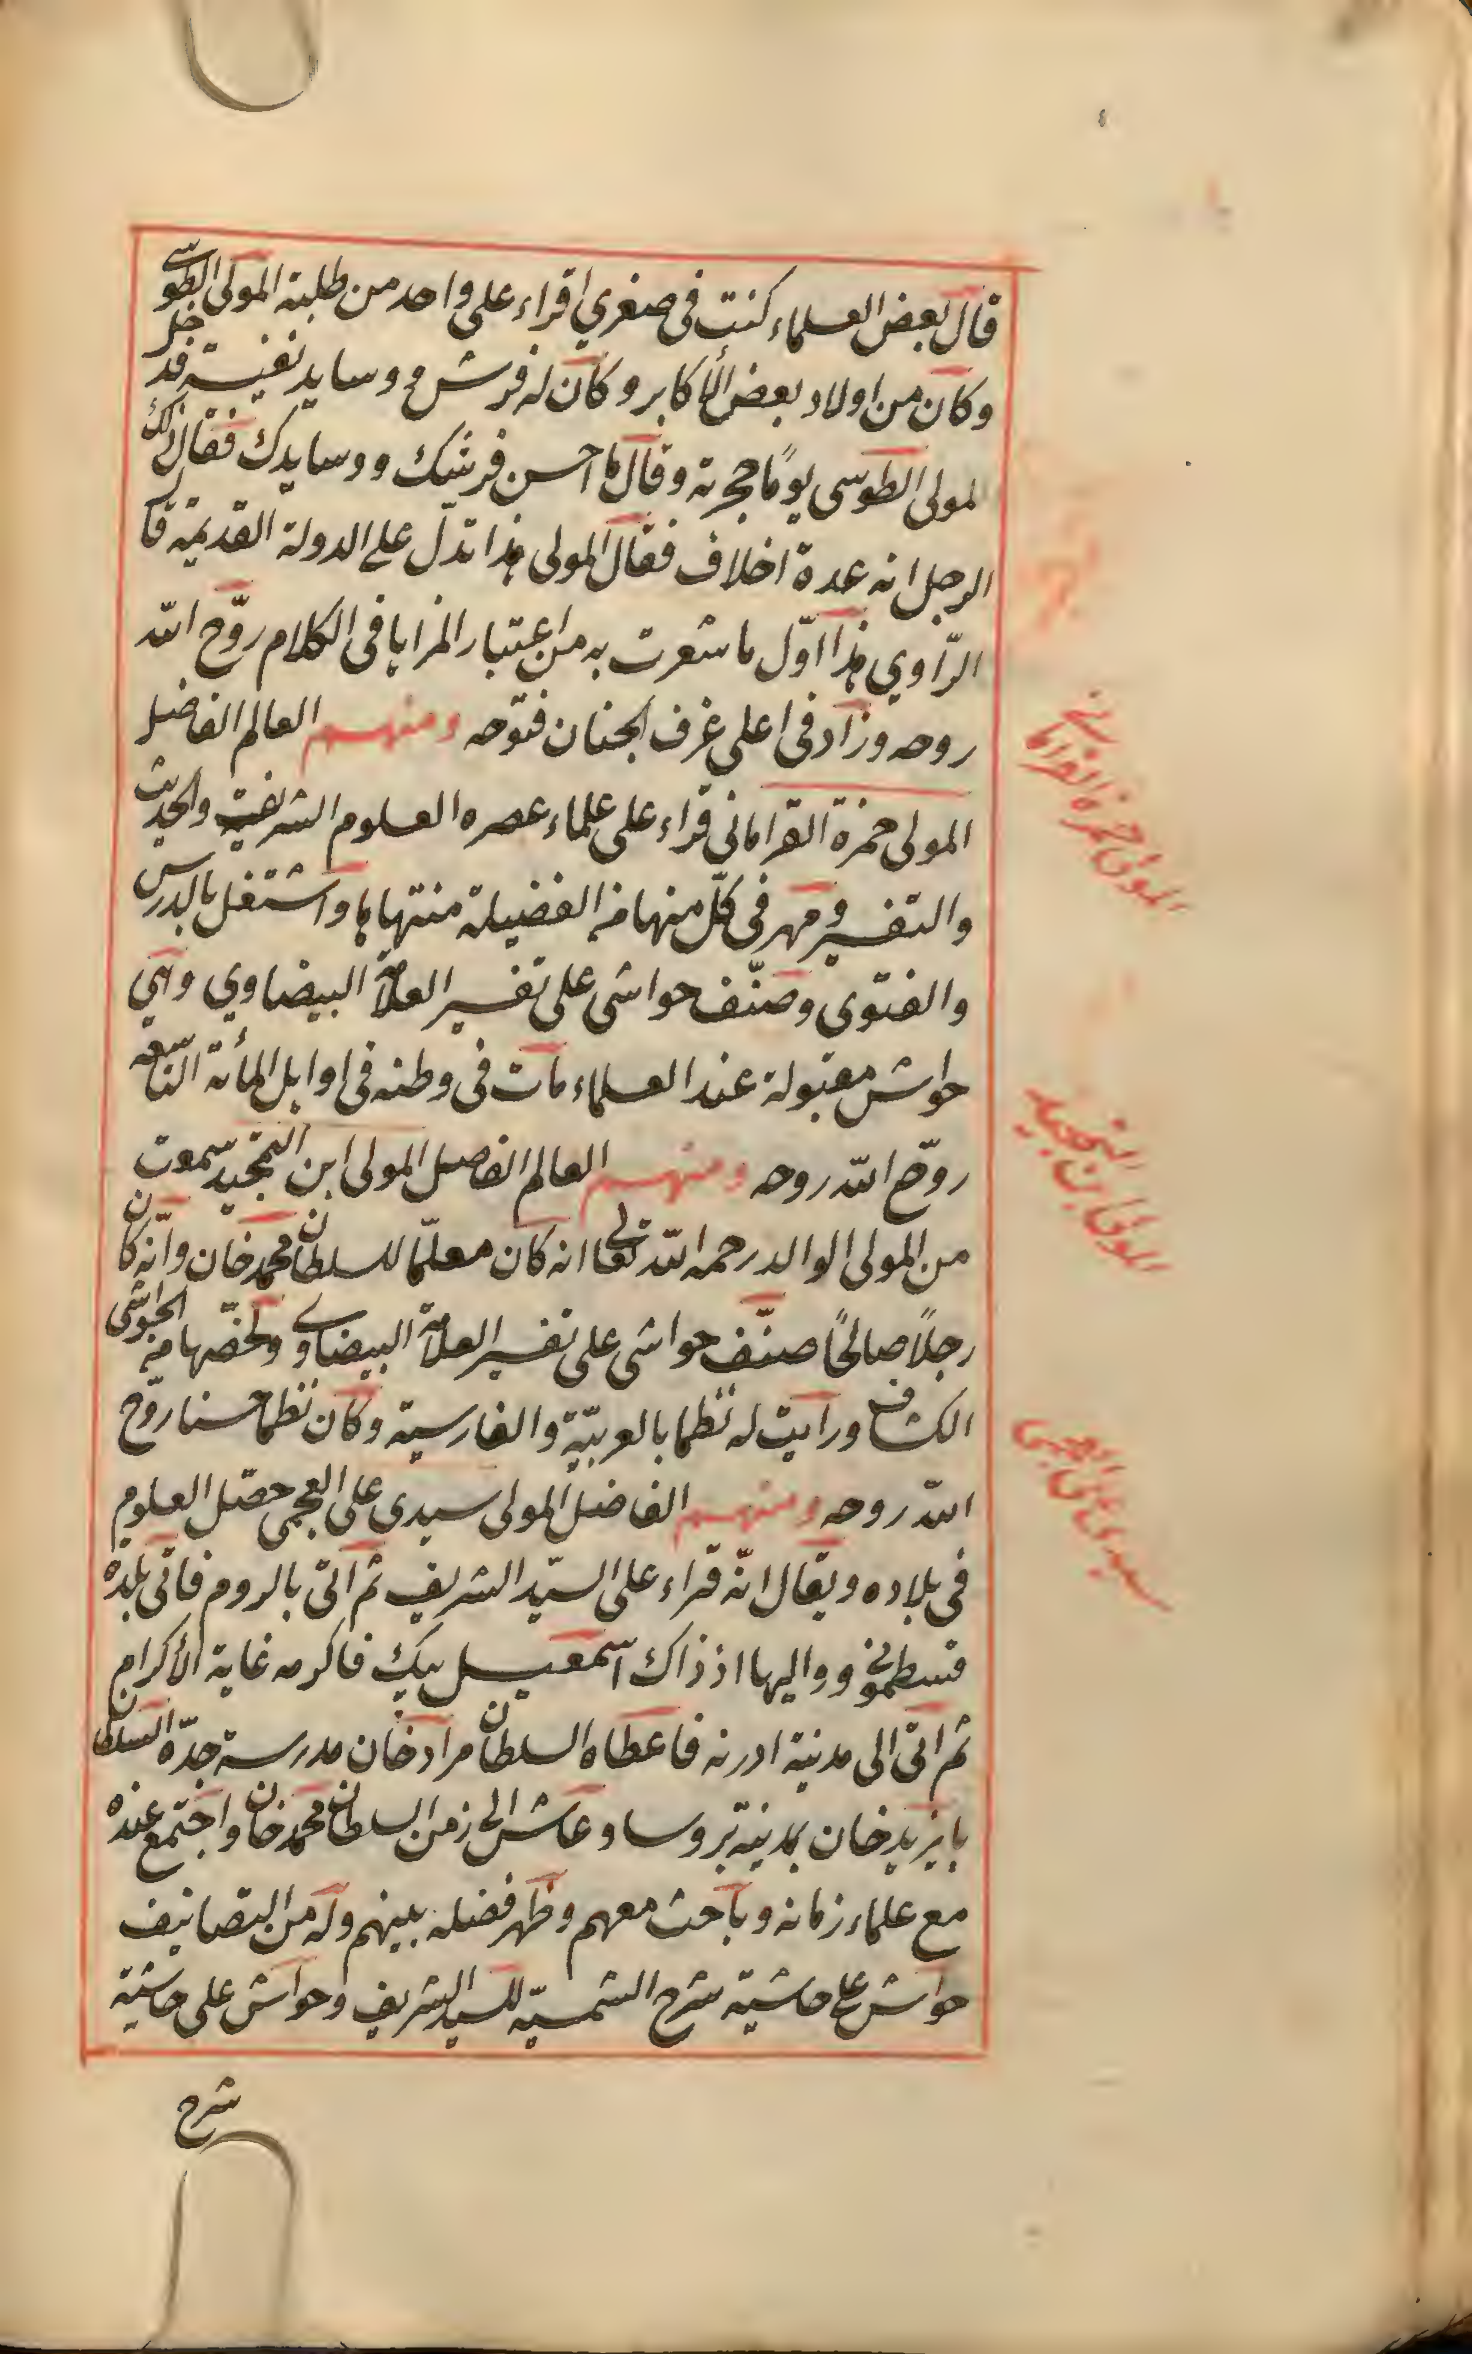 قال بعض العلماء كنت في صغري اقراء على واحد من طلبة المولى الطوسى
وكان من اولاد بعض الأكابر وكان له فرش ووسايد نفيسة فدخل
المولى الطوسى يومًا حجرته وقال ما احسن فرشك ووسايدك فقال ذلك
الرجل انه عدة اخلاف فقال المولى هذا تدلّ على الدولة القديمة قال
الرّاوي هذا اوّل ما شعرت به من اعتبار المزايا في الكلام روّح الله
روحه وزاد في اعلى غرف الجنان فتوحه ومنهم العالم الفاضل
المولى حمزة القراماني قراء على علماء عصره العلوم الشريفة والحديث
والتفسير ومهر في كلّ منها من الفضيلة منتهاها واشتغل بالدرس
والفتوى وصنّف حواشى على تفسير العلاّمة البيضاوي وهي
حواش مقبولة عند العلماء مات في وطنه في اوايل المأئة التاسعة
روّح الله روحه ومنهم العالم الفاضل المولى ابن التمجيد سمعت
من المولى الوالد رحمه الله تعالى انه كان معلّما للسلطان محمد خان وانّه كان
رجلاً صالحًا صنّف حواشى على تفسير العلاّمة البيضاوي ولخّصها من حواشى
الكشاف ورايت له نظما بالعربيّة والفارسية وكان نظما حسنا روّح
الله روحه ومنهم الفاضل المولى سيدى على العجمى حصّل العلوم
في بلاده ويقال انّه قراء على السيّد الشريف ثم اتى بالروم فاتى بلدة
قسطمونى وواليها اذ ذاك اسمعيل بيك فاكرمه غاية الأكرام
ثم اتى الى مدينة ادرنه فاعطاه السلطان مراد خان مدرسة جدّه السلطان
بايزيد خان بمدينة بروسا وعاش الى زمن السلطان محمد خان واجتمع عنده
مع علماء زمانه وباحث معهم وظهر فضله بينهم وله من التصانيف
حواش على حاشية شرح الشمسيّة للسيد الشريف وحواش على حاشية
شرح
المولى حمزه القرامانى
المولى ابن التمجيد
سيدى على العجمى